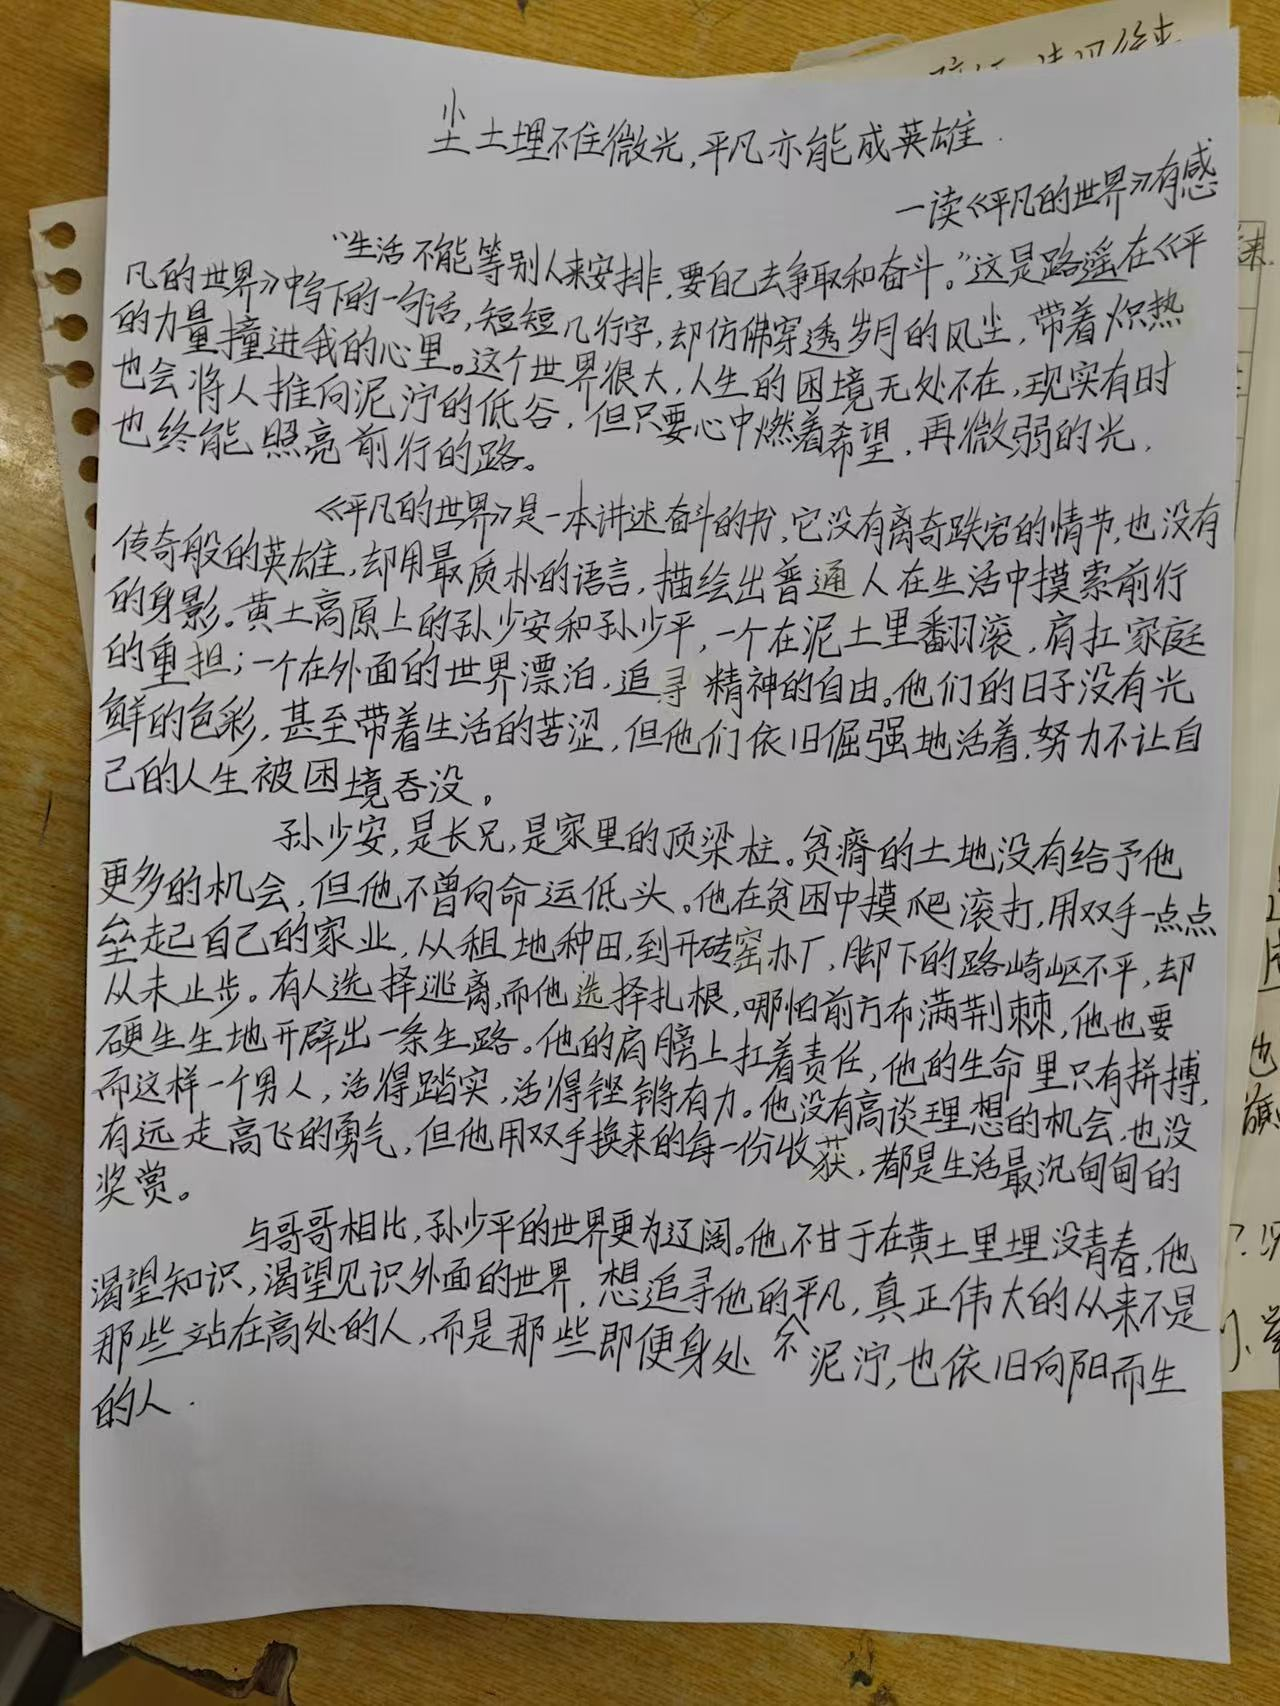 尘土埋不住微光，平凡亦能成英雄．
一读《平凡的世界》有感
“生活不能等别人来安排，要自己去争取和奋斗。”这是路遥在《平
凡的世界》中写下的一句话，短短几行字，却仿佛穿透岁月的风尘，带着炽热
的力量撞进我的心里。这个世界很大，人生的困境无处不在，现实有时
也会将人推向泥泞的低谷，但只要心中燃着希望，再微弱的光，
也终能照亮前行的路。
《平凡的世界》是一本讲述奋斗的书，它没有离奇跌宕的情节，也没有
传奇般的英雄，却用最质朴的语言，描绘出普通人在生活中摸索前行
的身影。黄土高原上的孙少安和孙少平，一个在泥土里翻滚，肩扛家庭
的重担；一个在外面的世界漂泊，追寻精神的自由。他们的日子没有光
鲜的色彩，甚至带着生活的苦涩，但他们依旧倔强地活着，努力不让自
己的人生被困境吞没。
孙少安，是长兄，是家里的顶梁柱。贫瘠的土地没有给予他
更多的机会，但他不曾向命运低头。他在贫困中摸爬滚打，用双手一点点
垒起自己的家业，从租地种田，到开砖窑办厂，脚下的路崎岖不平，却
从未止步。有人选择逃离，而他选择扎根，哪怕前方布满荆棘，他也要
硬生生地开辟出一条生路。他的肩膀上扛着责任，他的生命里只有拼搏，
而这样一个男人，活得踏实，活得铿锵有力。他没有高谈理想的机会，也没
有远走高飞的勇气，但他用双手换来的每一份收获，都是生活最沉甸甸的
奖赏。
与哥哥相比，孙少平的世界更为辽阔。他不甘于在黄土里埋没青春，他
渴望知识，渴望见识外面的世界，想追寻他的平凡，真正伟大的从来不是
那些站在高处的人，而是那些即便身处泥泞，也依旧向阳而生
的人．